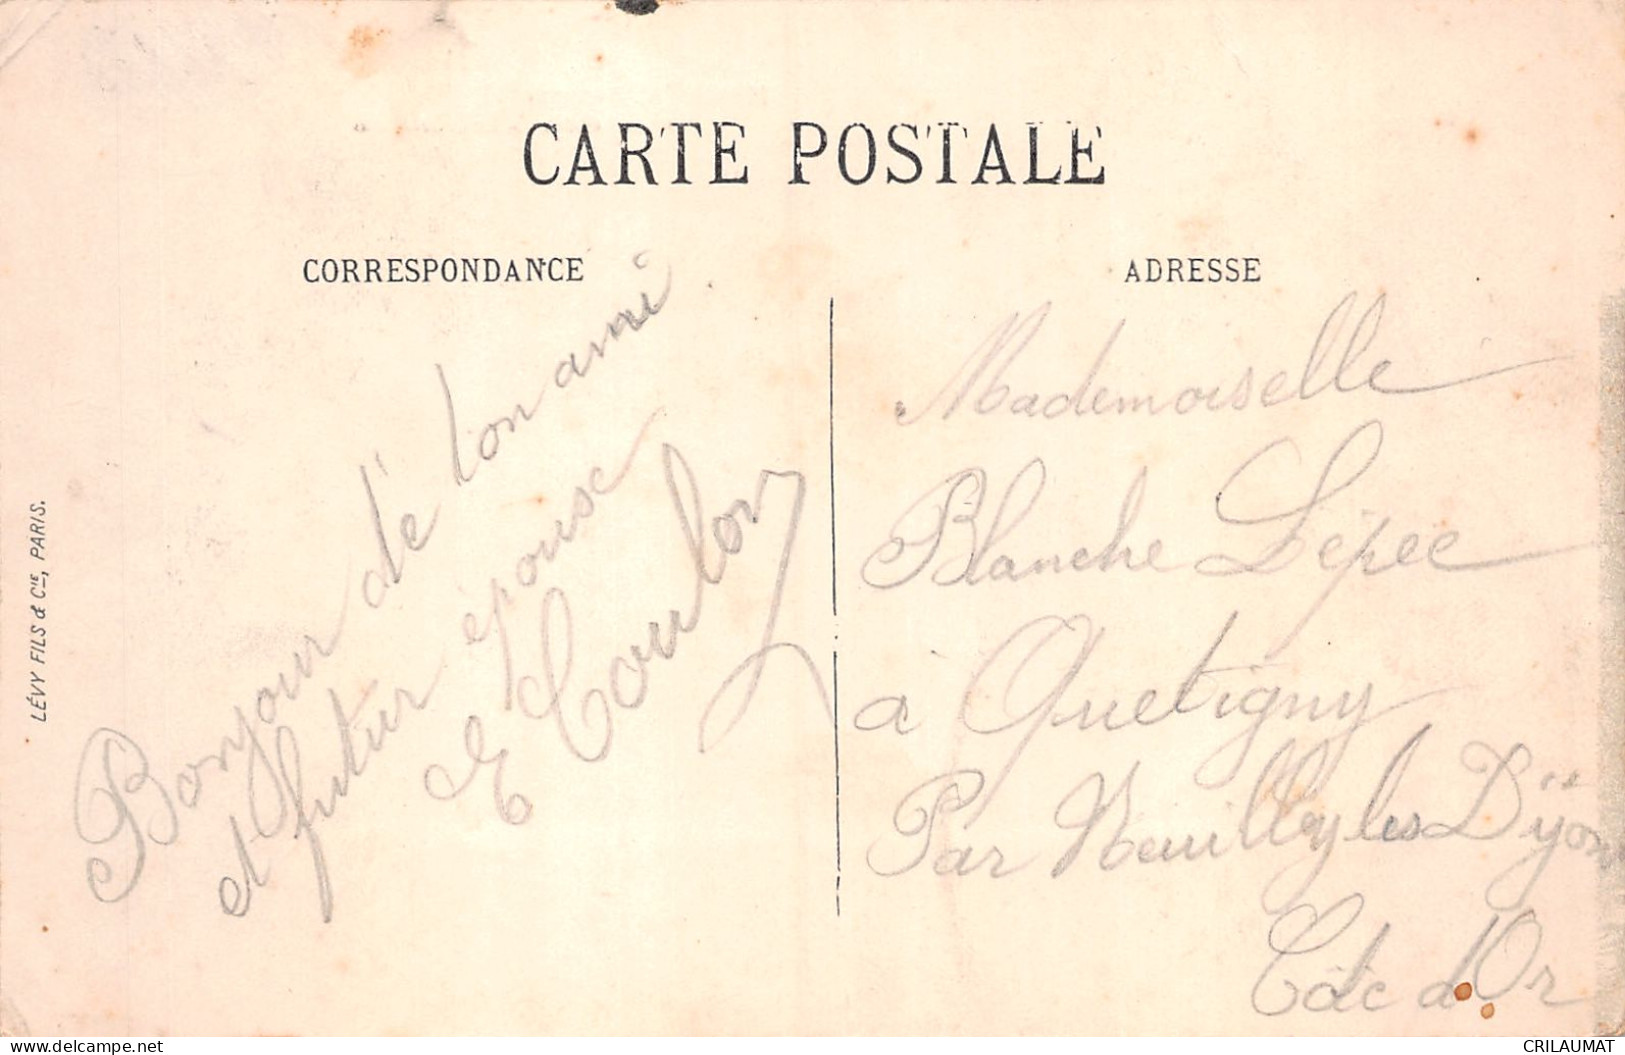 CARTE POSTALE
CORRESPONDANCE
ADRESSE
Bonjour de ton ami
et futur épouse
E Coulon
Mademoiselle
Blanche Lépee
a Quetigny
Par Neuilly les Dijon
Côte d'Or
LÉVY FILS & Cie, PARIS.
CRILAUMAT